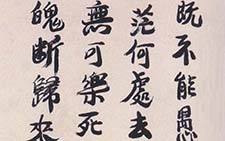 既不能愚
茫何處去
無可樂死
魄斷歸來